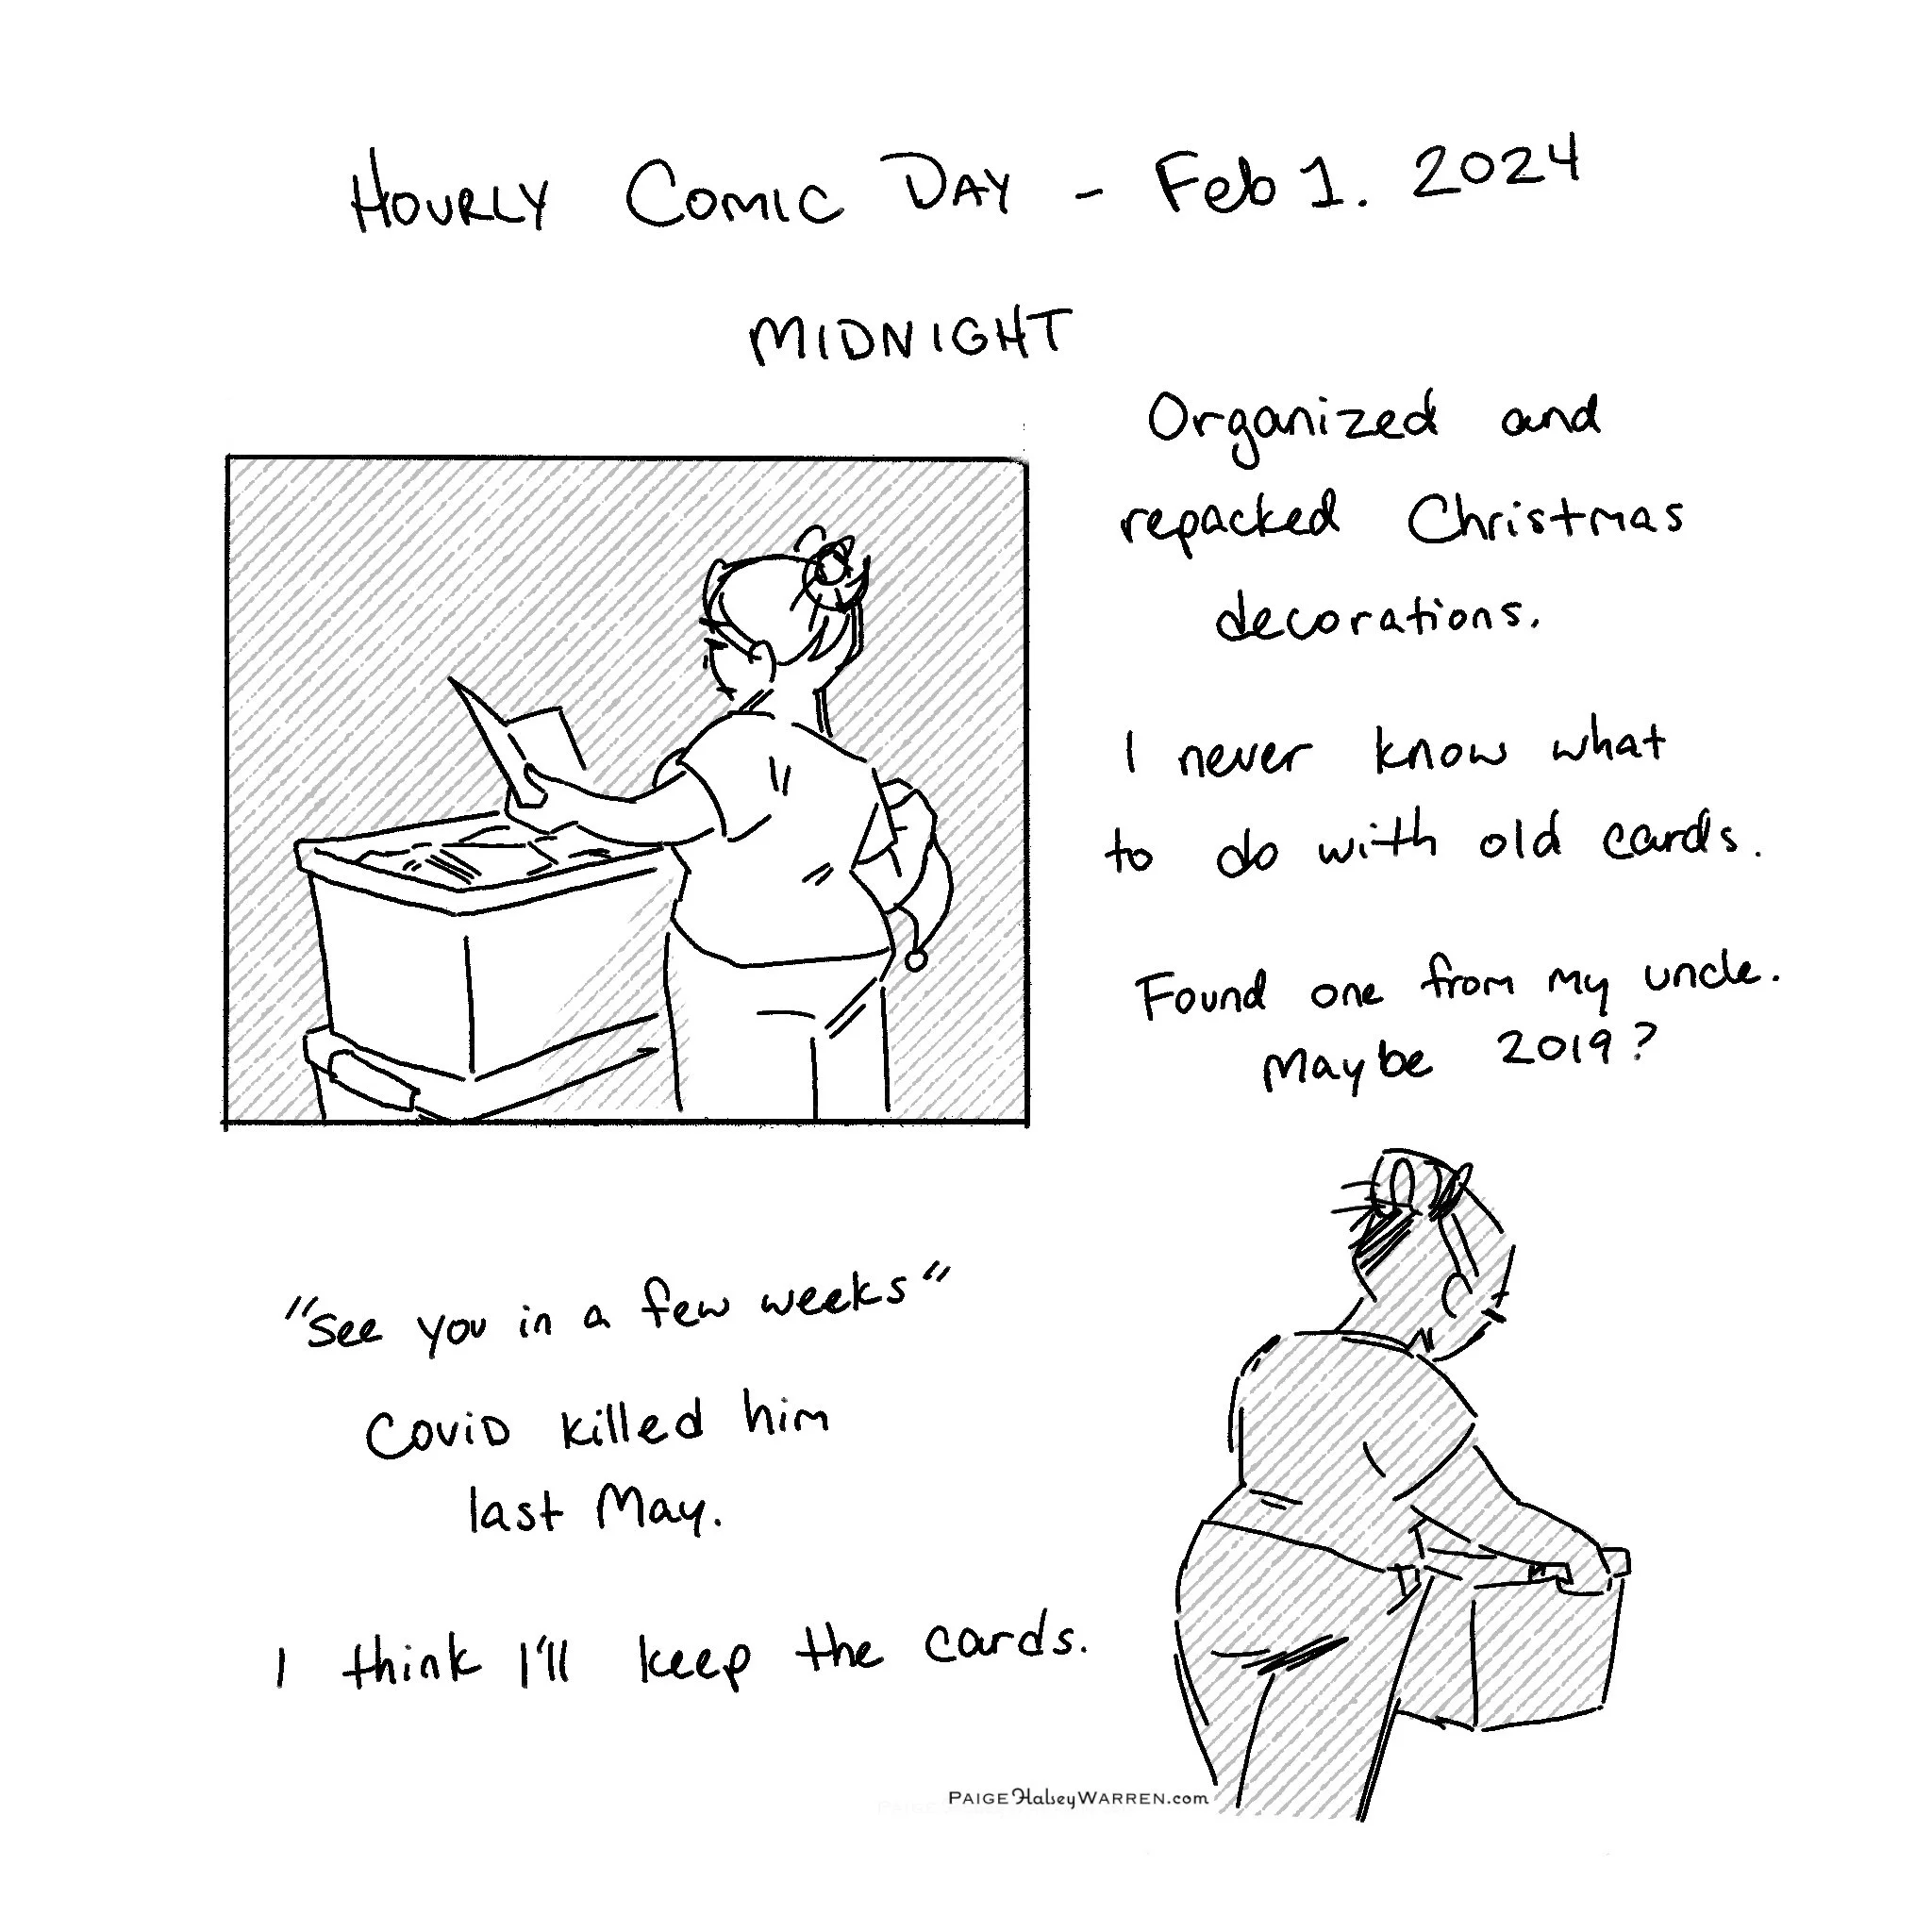 HOURLY COMIC DAY - Feb 1. 2024
MIDNIGHT
Organized and
repacked Christmas
decorations.
I never know what
to do with old cards.
Found one from my uncle.
Maybe 2019?
"See you in a few weeks"
COVID killed him
last May.
I think I'll keep the cards.
PAIGE Halsey WARREN.com